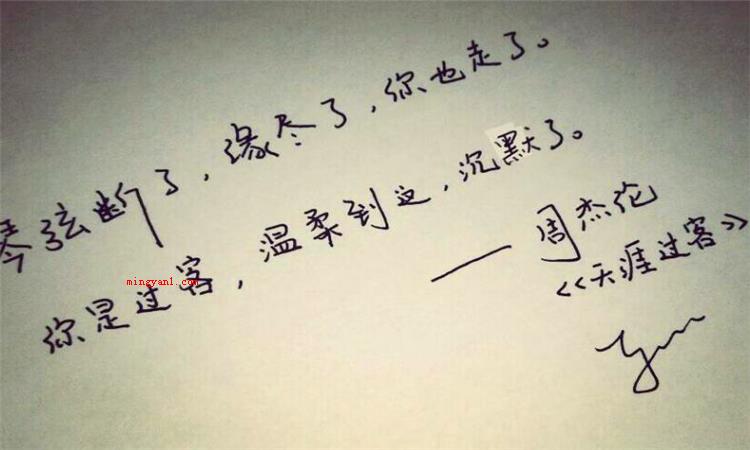 琴弦断了,缘尽了,你也走了。
你是过客,温柔到这,沉默了。
——周杰伦
《天涯过客》
mingyan1.com